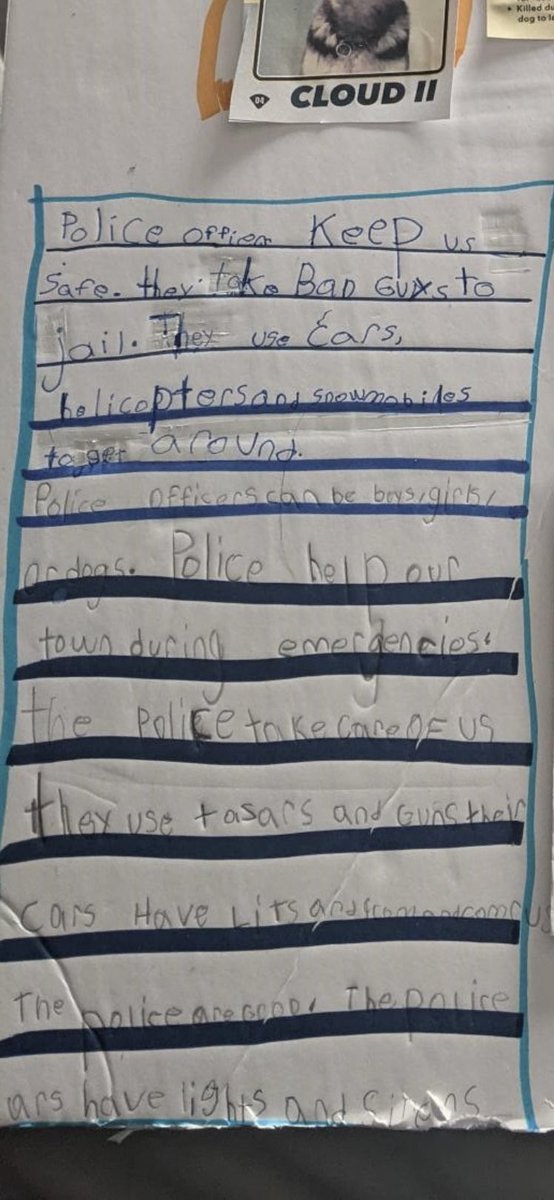 • Killed du
dog to le
04 CLOUD II
Police officer Keep us
safe. they take Bad Guys to
jail. They use Cars,
helicopters and snowmobiles
to get around.
Police officers can be boys, girls,
or dogs. Police help our
town during emergencies.
the Police take care OF US
they use tasars and Guns their
Cars Have Lits and
The police are good. The police
ars have lights and sirans